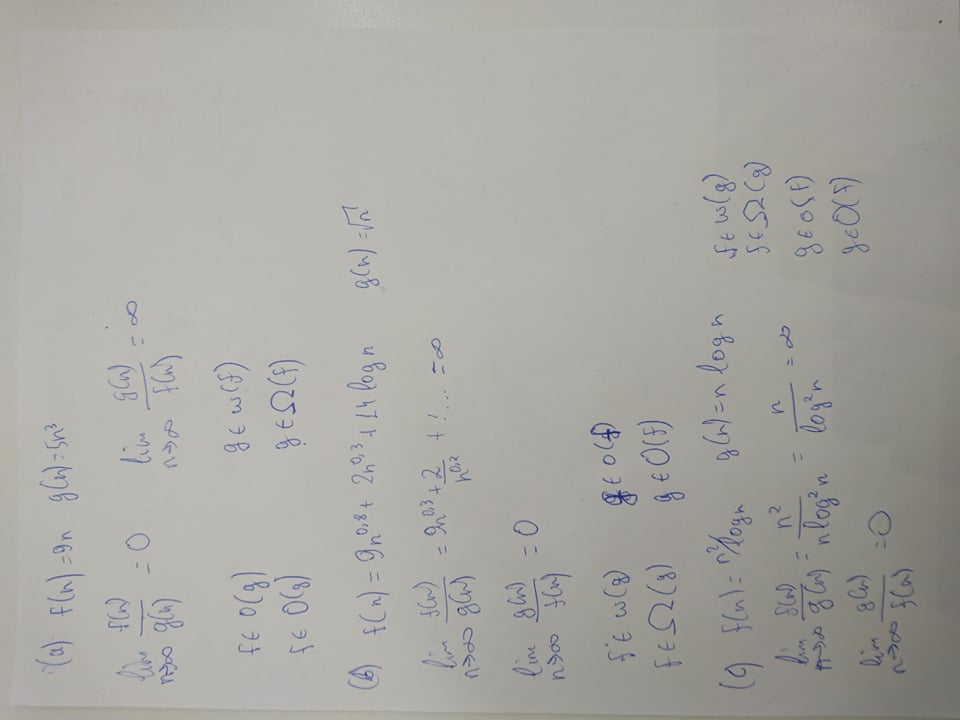 (a) f(n) = 9n g(n) = 5n³
lim n→∞ f(n)/g(n) = 0 lim n→∞ g(n)/f(n) = ∞
f ∈ o(g) g ∈ ω(f)
f ∈ O(g) g ∈ Ω(f)
(b) f(n) = 9n^0,8 + 2n^0,3 + 14 log n g(n) = √n
lim n→∞ f(n)/g(n) = 9n^0,3 + 2/n^0,2 + ... = ∞
lim n→∞ g(n)/f(n) = 0
f ∈ ω(g) g ∈ o(f)
f ∈ Ω(g) g ∈ O(f)
(c) f(n) = n²/log n g(n) = n log n f ∈ ω(g)
lim n→∞ f(n)/g(n) = n²/(n log² n) = n/(log² n) = ∞ f ∈ Ω(g)
g ∈ o(f)
lim n→∞ g(n)/f(n) = 0 g ∈ O(f)